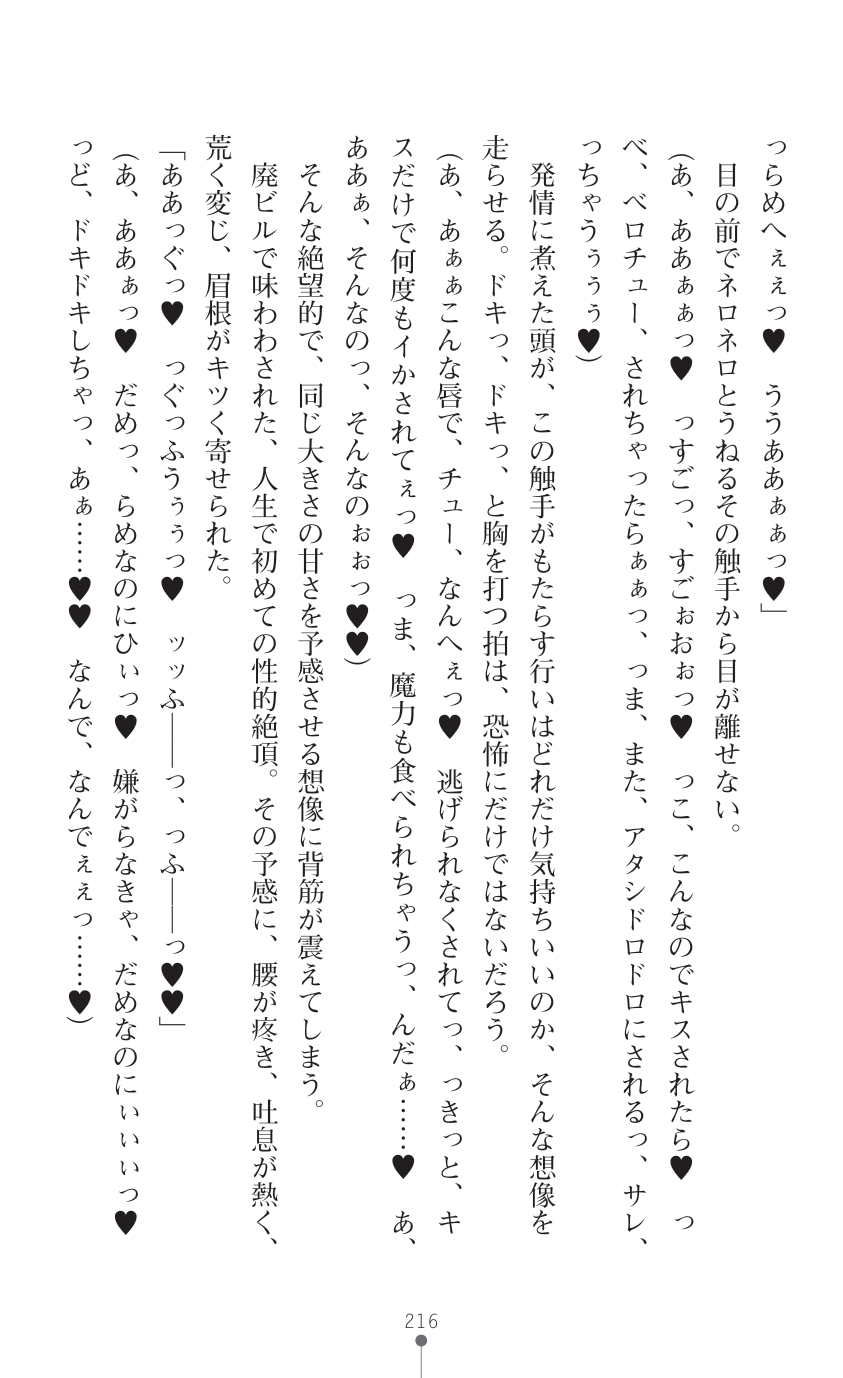 っらめへぇぇっ♥　ううああぁぁっ♥」
　目の前でネロネロとうねるその触手から目が離せない。
（あ、ああぁぁっ♥　っすごっ、すごぉおぉっ♥　っこ、こんなのでキスされたら♥　っ
べ、ベロチュー、されちゃったらぁぁっ、っま、また、アタシドロドロにされるっ、サレ、
っちゃうぅぅぅ♥）
　発情に煮えた頭が、この触手がもたらす行いはどれだけ気持ちいいのか、そんな想像を
走らせる。ドキっ、ドキっ、と胸を打つ拍は、恐怖にだけではないだろう。
（あ、あぁぁこんな唇で、チュー、なんへぇっ♥　逃げられなくされてっ、っきっと、キ
スだけで何度もイかされてぇっ♥　っま、魔力も食べられちゃうっ、んだぁ……♥　あ、
ああぁ、そんなのっ、そんなのぉぉっ♥♥）
　そんな絶望的で、同じ大きさの甘さを予感させる想像に背筋が震えてしまう。
　廃ビルで味わわされた、人生で初めての性的絶頂。その予感に、腰が疼き、吐息が熱く、
荒く変じ、眉根がキツく寄せられた。
「ああっぐっ♥　っぐっふうぅぅっ♥　ッッふ――っ、っふ――っ♥♥」
（あ、ああぁっ♥　だめっ、らめなのにひぃっ♥　嫌がらなきゃ、だめなのにぃぃぃっ♥
っど、ドキドキしちゃっ、あぁ……♥♥　なんで、なんでぇぇっ……♥）
216